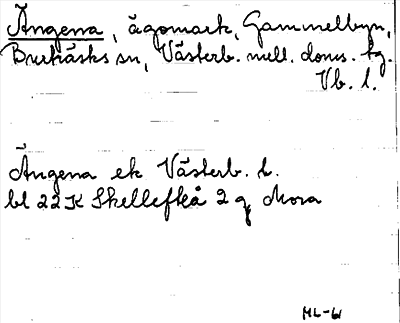 Ängena, ägomark, Gammelbyn,
Burträsks sn, Västerb. mell. doms. tg.
Vb. l.
Ängena ek Västerb. l.
bl 22 K Skellefteå 2 g Mora
ML-W